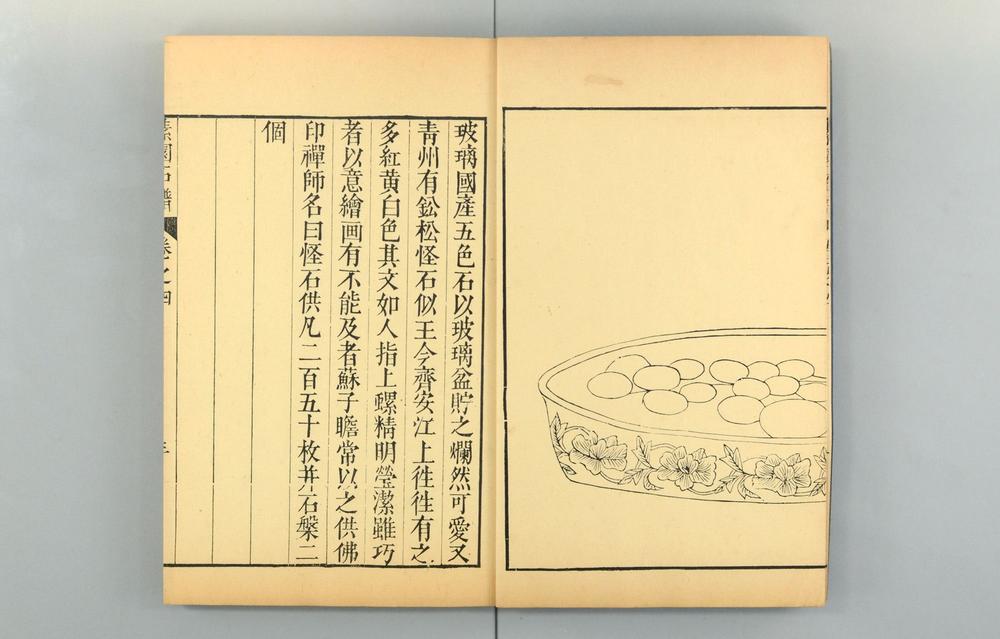 玻璃國產五色石以玻璃盆貯之爛然可愛又
青州有鈆松怪石似玉今齊安江上徃徃有之
多紅黄白色其文如人指上螺精明瑩潔雖巧
者以意繪画有不能及者蘇子瞻常以之供佛
印禪師名曰怪石供凡二百五十枚并石槃二
個
素園石譜
卷之四